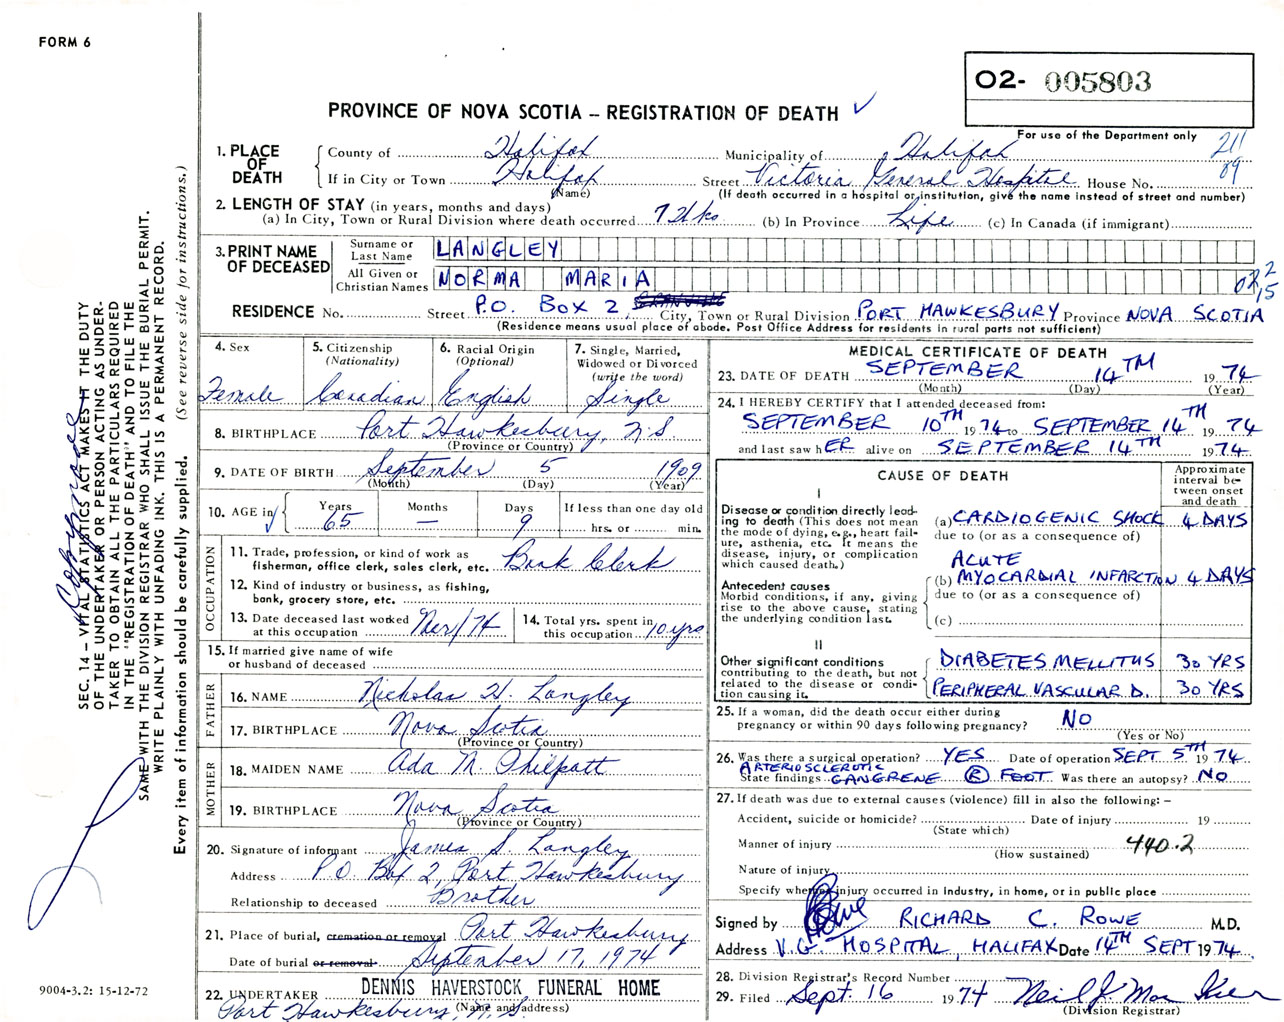 FORM 6
O2- 005803
PROVINCE OF NOVA SCOTIA – REGISTRATION OF DEATH ✓
For use of the Department only
211
09
1. PLACE OF DEATH
County of Halifax Municipality of Halifax
If in City or Town Halifax Street Victoria General Hospital House No.
(Name) (If death occurred in a hospital or institution, give the name instead of street and number)
2. LENGTH OF STAY (in years, months and days)
(a) In City, Town or Rural Division where death occurred (b) In Province Life (c) In Canada (if immigrant)
3. PRINT NAME OF DECEASED
Surname or Last Name LANGLEY
All Given or Christian Names NORMA MARIA
RESIDENCE No. Street P.O. BOX 2, City, Town or Rural Division PORT HAWKESBURY Province NOVA SCOTIA
(Residence means usual place of abode. Post Office Address for residents in rural parts not sufficient)
4. Sex
Female
5. Citizenship
(Nationality)
Canadian
6. Racial Origin
(Optional)
English
7. Single, Married,
Widowed or Divorced
(write the word)
Single
8. BIRTHPLACE Port Hawkesbury, N.S.
(Province or Country)
9. DATE OF BIRTH September 5 1909
(Month) (Day) (Year)
10. AGE in Years 65 Months — Days 9 If less than one day old
hrs. or min.
OCCUPATION
11. Trade, profession, or kind of work as
fisherman, office clerk, sales clerk, etc. Book Clerk
12. Kind of industry or business, as fishing,
bank, grocery store, etc.
13. Date deceased last worked
at this occupation /74
14. Total yrs. spent in
this occupation 10 yrs
15. If married give name of wife
or husband of deceased
FATHER
16. NAME Nicholas H. Langley
17. BIRTHPLACE Nova Scotia
(Province or Country)
MOTHER
18. MAIDEN NAME Ada M. Philpott
19. BIRTHPLACE Nova Scotia
(Province or Country)
20. Signature of informant James S. Langley
Address P.O. Box 2, Port Hawkesbury
Relationship to deceased Brother
21. Place of burial, cremation or removal Port Hawkesbury
Date of burial or removal September 17, 1974
22. UNDERTAKER DENNIS HAVERSTOCK FUNERAL HOME
(Name and address)
Port Hawkesbury, N.S.
MEDICAL CERTIFICATE OF DEATH
23. DATE OF DEATH SEPTEMBER 14TH 1974
(Month) (Day) (Year)
24. I HEREBY CERTIFY that I attended deceased from:
SEPTEMBER 10TH 1974 to SEPTEMBER 14TH 1974
and last saw hER alive on SEPTEMBER 14TH 1974.
CAUSE OF DEATH
Approximate interval between onset and death
I
Disease or condition directly leading to death (This does not mean the mode of dying, e.g., heart failure, asthenia, etc. It means the disease, injury, or complication which caused death.)
(a) CARDIOGENIC SHOCK 4 DAYS
due to (or as a consequence of)
ACUTE
(b) MYOCARDIAL INFARCTION 4 DAYS
due to (or as a consequence of)
Antecedent causes
Morbid conditions, if any, giving rise to the above cause, stating the underlying condition last.
(c)
II
Other significant conditions
contributing to the death, but not related to the disease or condition causing it.
DIABETES MELLITUS 30 YRS
PERIPHERAL VASCULAR D. 30 YRS
25. If a woman, did the death occur either during
pregnancy or within 90 days following pregnancy? NO
(Yes or No)
26. Was there a surgical operation? YES Date of operation SEPT 5TH 1974
ARTERIOSCLEROTIC
State findings GANGRENE Ⓡ FOOT Was there an autopsy? NO
27. If death was due to external causes (violence) fill in also the following: –
Accident, suicide or homicide? Date of injury 19
(State which)
Manner of injury 440.2
(How sustained)
Nature of injury
Specify whether injury occurred in industry, in home, or in public place
Signed by Rowe RICHARD C. ROWE M.D.
Address V.G. HOSPITAL, HALIFAX Date 14TH SEPT 1974.
28. Division Registrar's Record Number
29. Filed Sept. 16 1974 Neil J.
(Division Registrar)
SEC. 14 – VITAL STATISTICS ACT MAKES IT THE DUTY
OF THE UNDERTAKER OR PERSON ACTING AS UNDER-
TAKER TO OBTAIN ALL THE PARTICULARS REQUIRED
IN THE "REGISTRATION OF DEATH" AND TO FILE THE
SAME WITH THE DIVISION REGISTRAR WHO SHALL ISSUE THE BURIAL PERMIT.
WRITE PLAINLY WITH UNFADING INK. THIS IS A PERMANENT RECORD.
Every item of information should be carefully supplied. (See reverse side for instructions.)
9004-3.2: 15-12-72